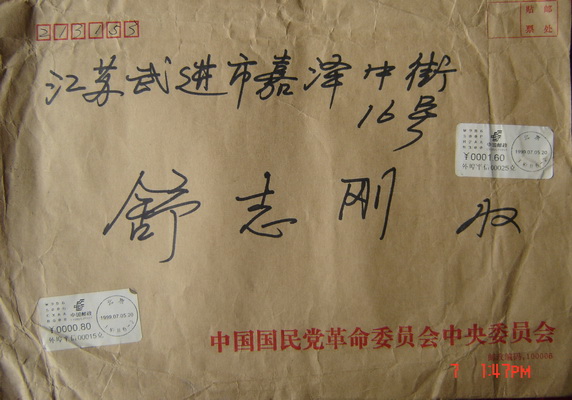 213153
贴邮
票处
江苏武进市嘉泽中街
16号
中国邮政
¥0001.60
1999.07.05.20
舒志刚 收
中国邮政
¥0000.80
1999.07.05.20
中国国民党革命委员会中央委员会
1:47PM